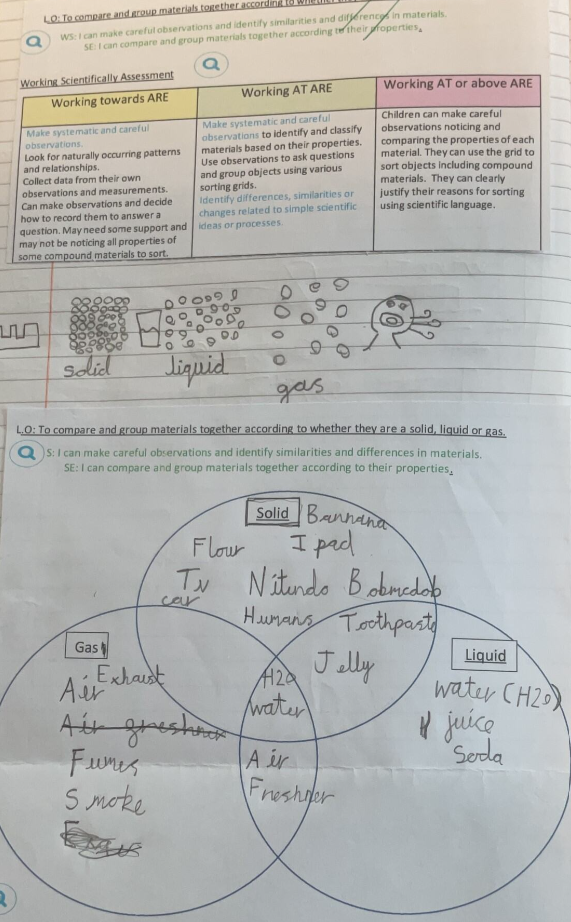 L.O: To compare and group materials together according to whether
WS: I can make careful observations and identify similarities and differences in materials.
SE: I can compare and group materials together according to their properties.
Working Scientifically Assessment
Working towards ARE
Make systematic and careful
observations.
Look for naturally occurring patterns
and relationships.
Collect data from their own
observations and measurements.
Can make observations and decide
how to record them to answer a
question. May need some support and
may not be noticing all properties of
some compound materials to sort.
Working AT ARE
Make systematic and careful
observations to identify and classify
materials based on their properties.
Use observations to ask questions
and group objects using various
sorting grids.
Identify differences, similarities or
changes related to simple scientific
ideas or processes.
Working AT or above ARE
Children can make careful
observations noticing and
comparing the properties of each
material. They can use the grid to
sort objects including compound
materials. They can clearly
justify their reasons for sorting
using scientific language.
solid
liquid
gas
L.O: To compare and group materials together according to whether they are a solid, liquid or gas.
S: I can make careful observations and identify similarities and differences in materials.
SE: I can compare and group materials together according to their properties.
Solid
Bannana
Flour
I pad
Tv
Nitindo
car
Humans
Toothpaste
Jelly
Gas
Exhaust
Air
Air greshner
Fumes
Smoke
H2o
water
Air
Freshner
Liquid
water (H2o)
juice
Soda